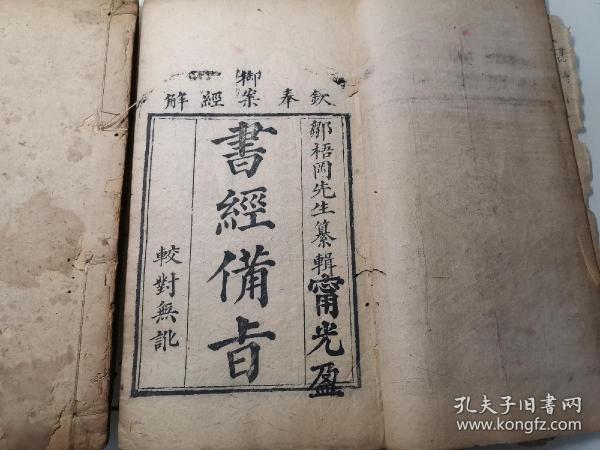 欽奉御案經解
鄒梧岡先生纂輯甯光盈
書經備旨
較對無訛
孔夫子旧书网
www.kongfz.com